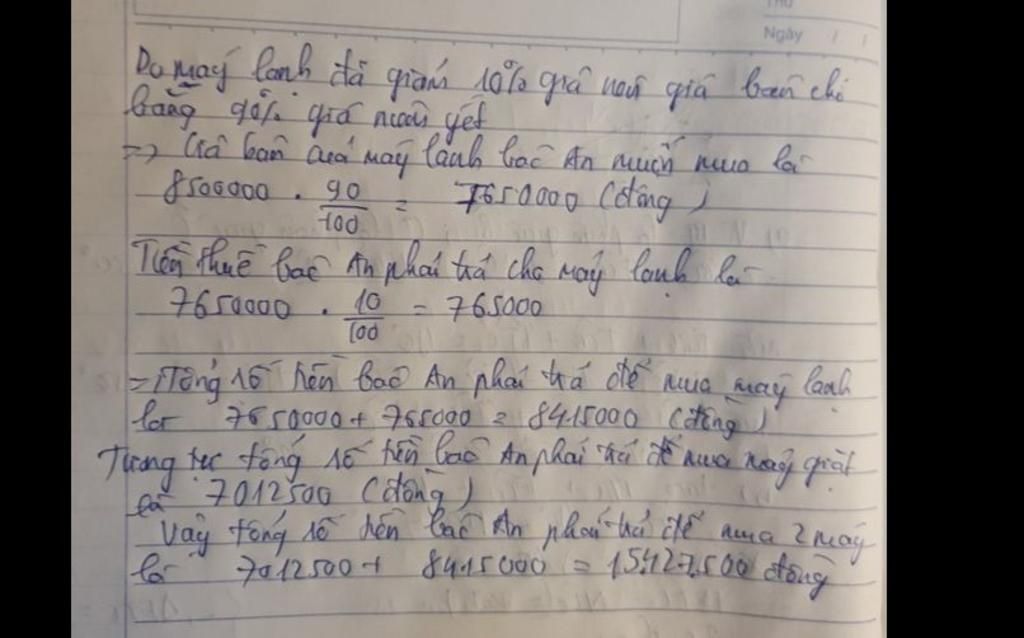 Ngày / /
Do máy lạnh đã giảm 10% giá nên giá bán chỉ
bằng 90% giá niêm yết
=> Giá bán của máy lạnh bác An muốn mua là
8500000 . 90/100 = 7650000 (đồng)
Tiền thuế bác An phải trả cho máy lạnh là
7650000 . 10/100 = 765000
=> Tổng số tiền bác An phải trả để mua máy lạnh
là 7650000 + 765000 = 8415000 (đồng)
Tương tự tổng số tiền bác An phải trả để mua máy giặt
là 7012500 (đồng)
Vậy tổng số tiền bác An phải trả để mua 2 máy
là 7012500 + 8415000 = 15.427.500 đồng